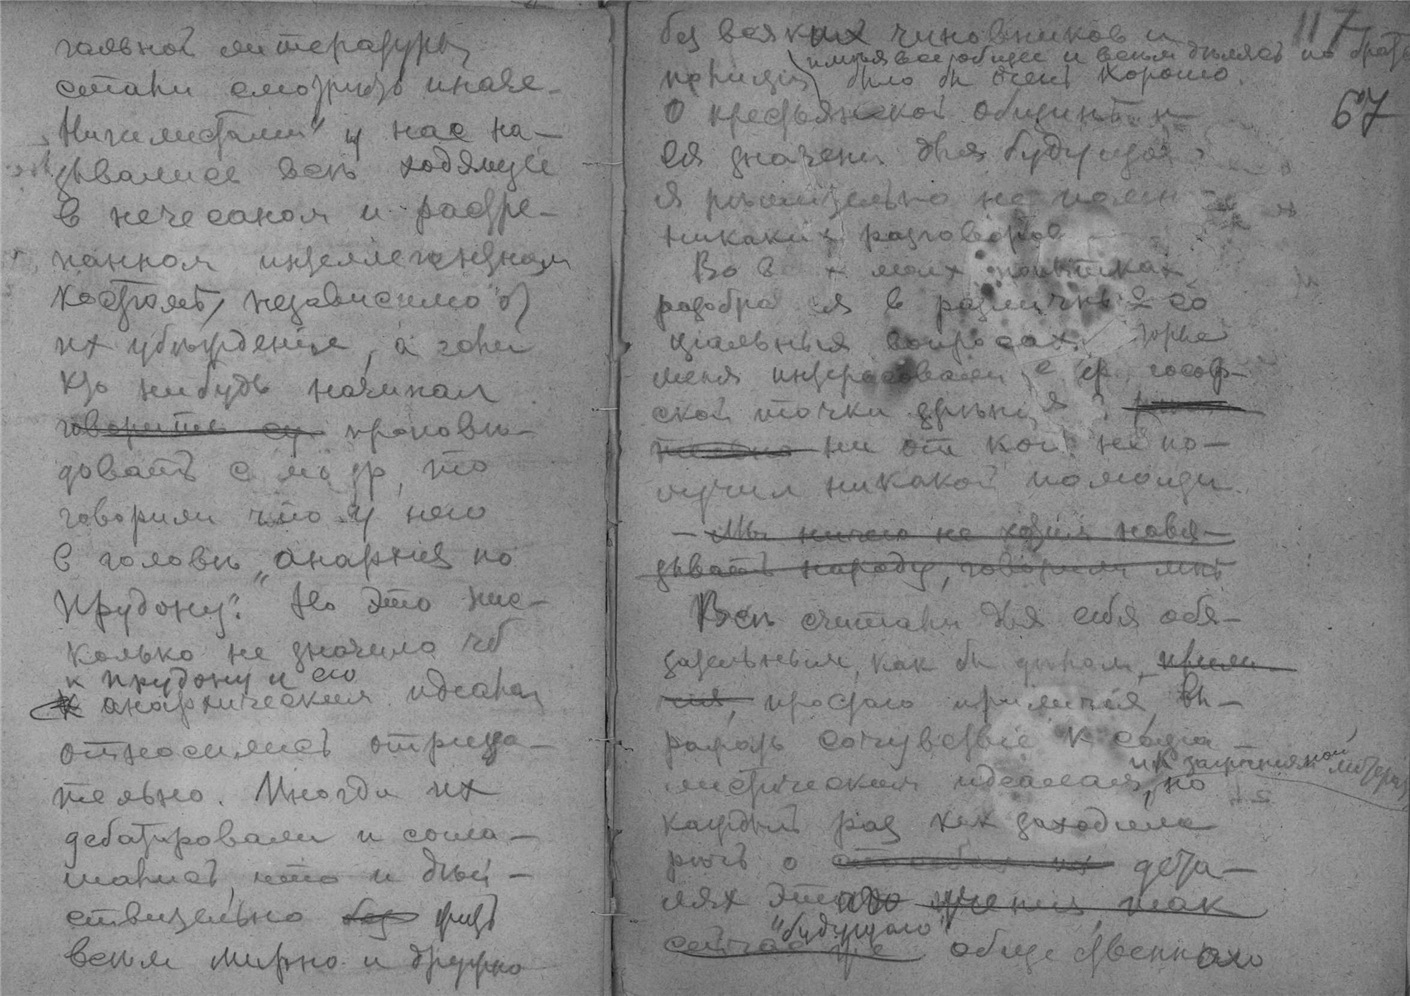 гальной литературы
стали смотреть иначе.
"Нигилистами" у нас на-
зывались всѣ ходящіе
в нечесаном и растре-
панном интеллегентном
костюмѣ, независимо от
их убѣжденія, а если
кто нибудь начинал
говорить проповѣ-
довать то
говорили что у него
в головѣ "анархия по
Прудону". Но это нис-
колько не значило чтоб
к Прудону и его
анархическим идеалам
относились отрица-
тельно. Иногда их
дебатировали и согла-
шались, что и дѣй-
ствительно без жить
всѣм мирно и дружно
117
без всяких чиновников и
имѣя все общее и всѣм дѣлясь по братски
полиции было бы очень хорошо.
67
О крестьянской общинѣ и
ея значении для будущаго
я рѣшительно не помню
никаких разговоров
Во всѣх моих попытках
разобраться в различных со
циальных вопросах, которые
меня интересовали с философ-
ской точки зрѣнія я
ни от кого не по-
лучил никакой помощи.
– Мы ничего не хотим навя-
зывать народу, говорили мнѣ
Всѣ считали для себя обя-
зательным, как бы дѣлом, прили
чия, простого приличія, вы-
разить сочувствіе к социа
листическим идеалам, но
их заграничной литературы
каждый раз как заходила
рѣчь о дета-
лях этого учения, так
"будущаго"
сейчас же общественнаго